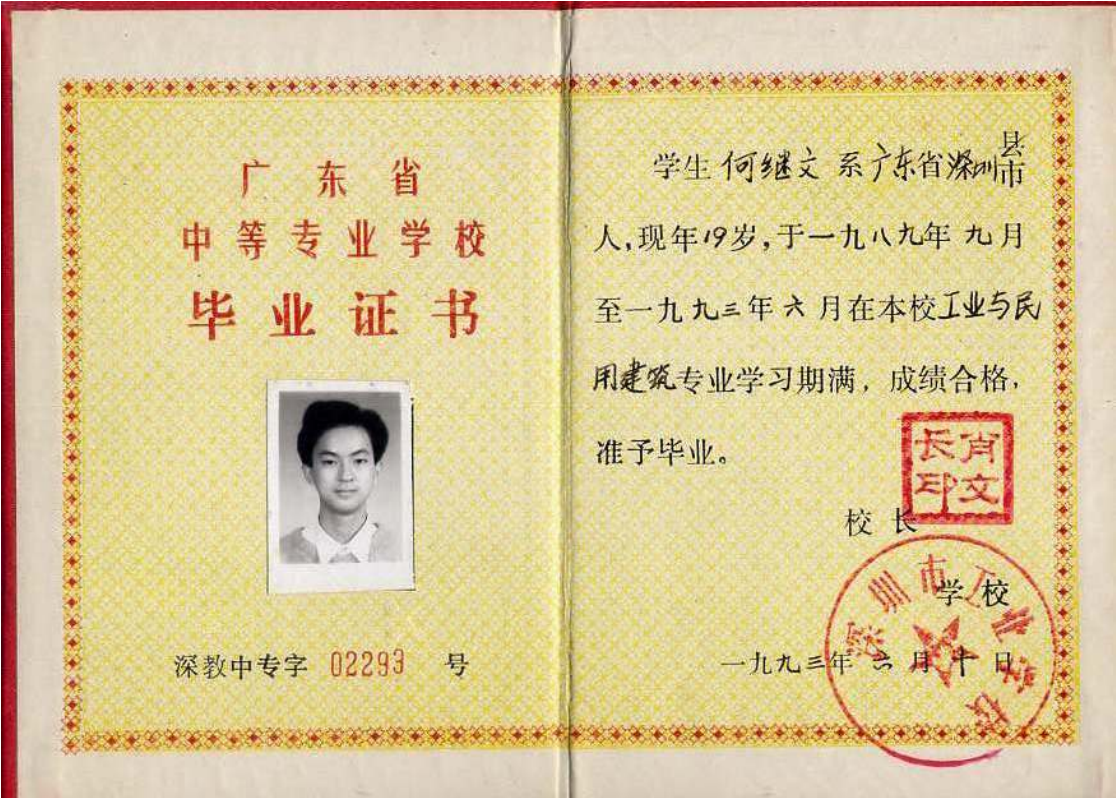 广东省
中等专业学校
毕业证书
深教中专字 02293 号
学生 何继文 系广东省深圳县市
人,现年19岁,于一九八九年九月
至一九九三年六月在本校工业与民
用建筑专业学习期满,成绩合格,
准予毕业。
校长
肖文长印
学校
深圳市工业学校
一九九三年六月十日